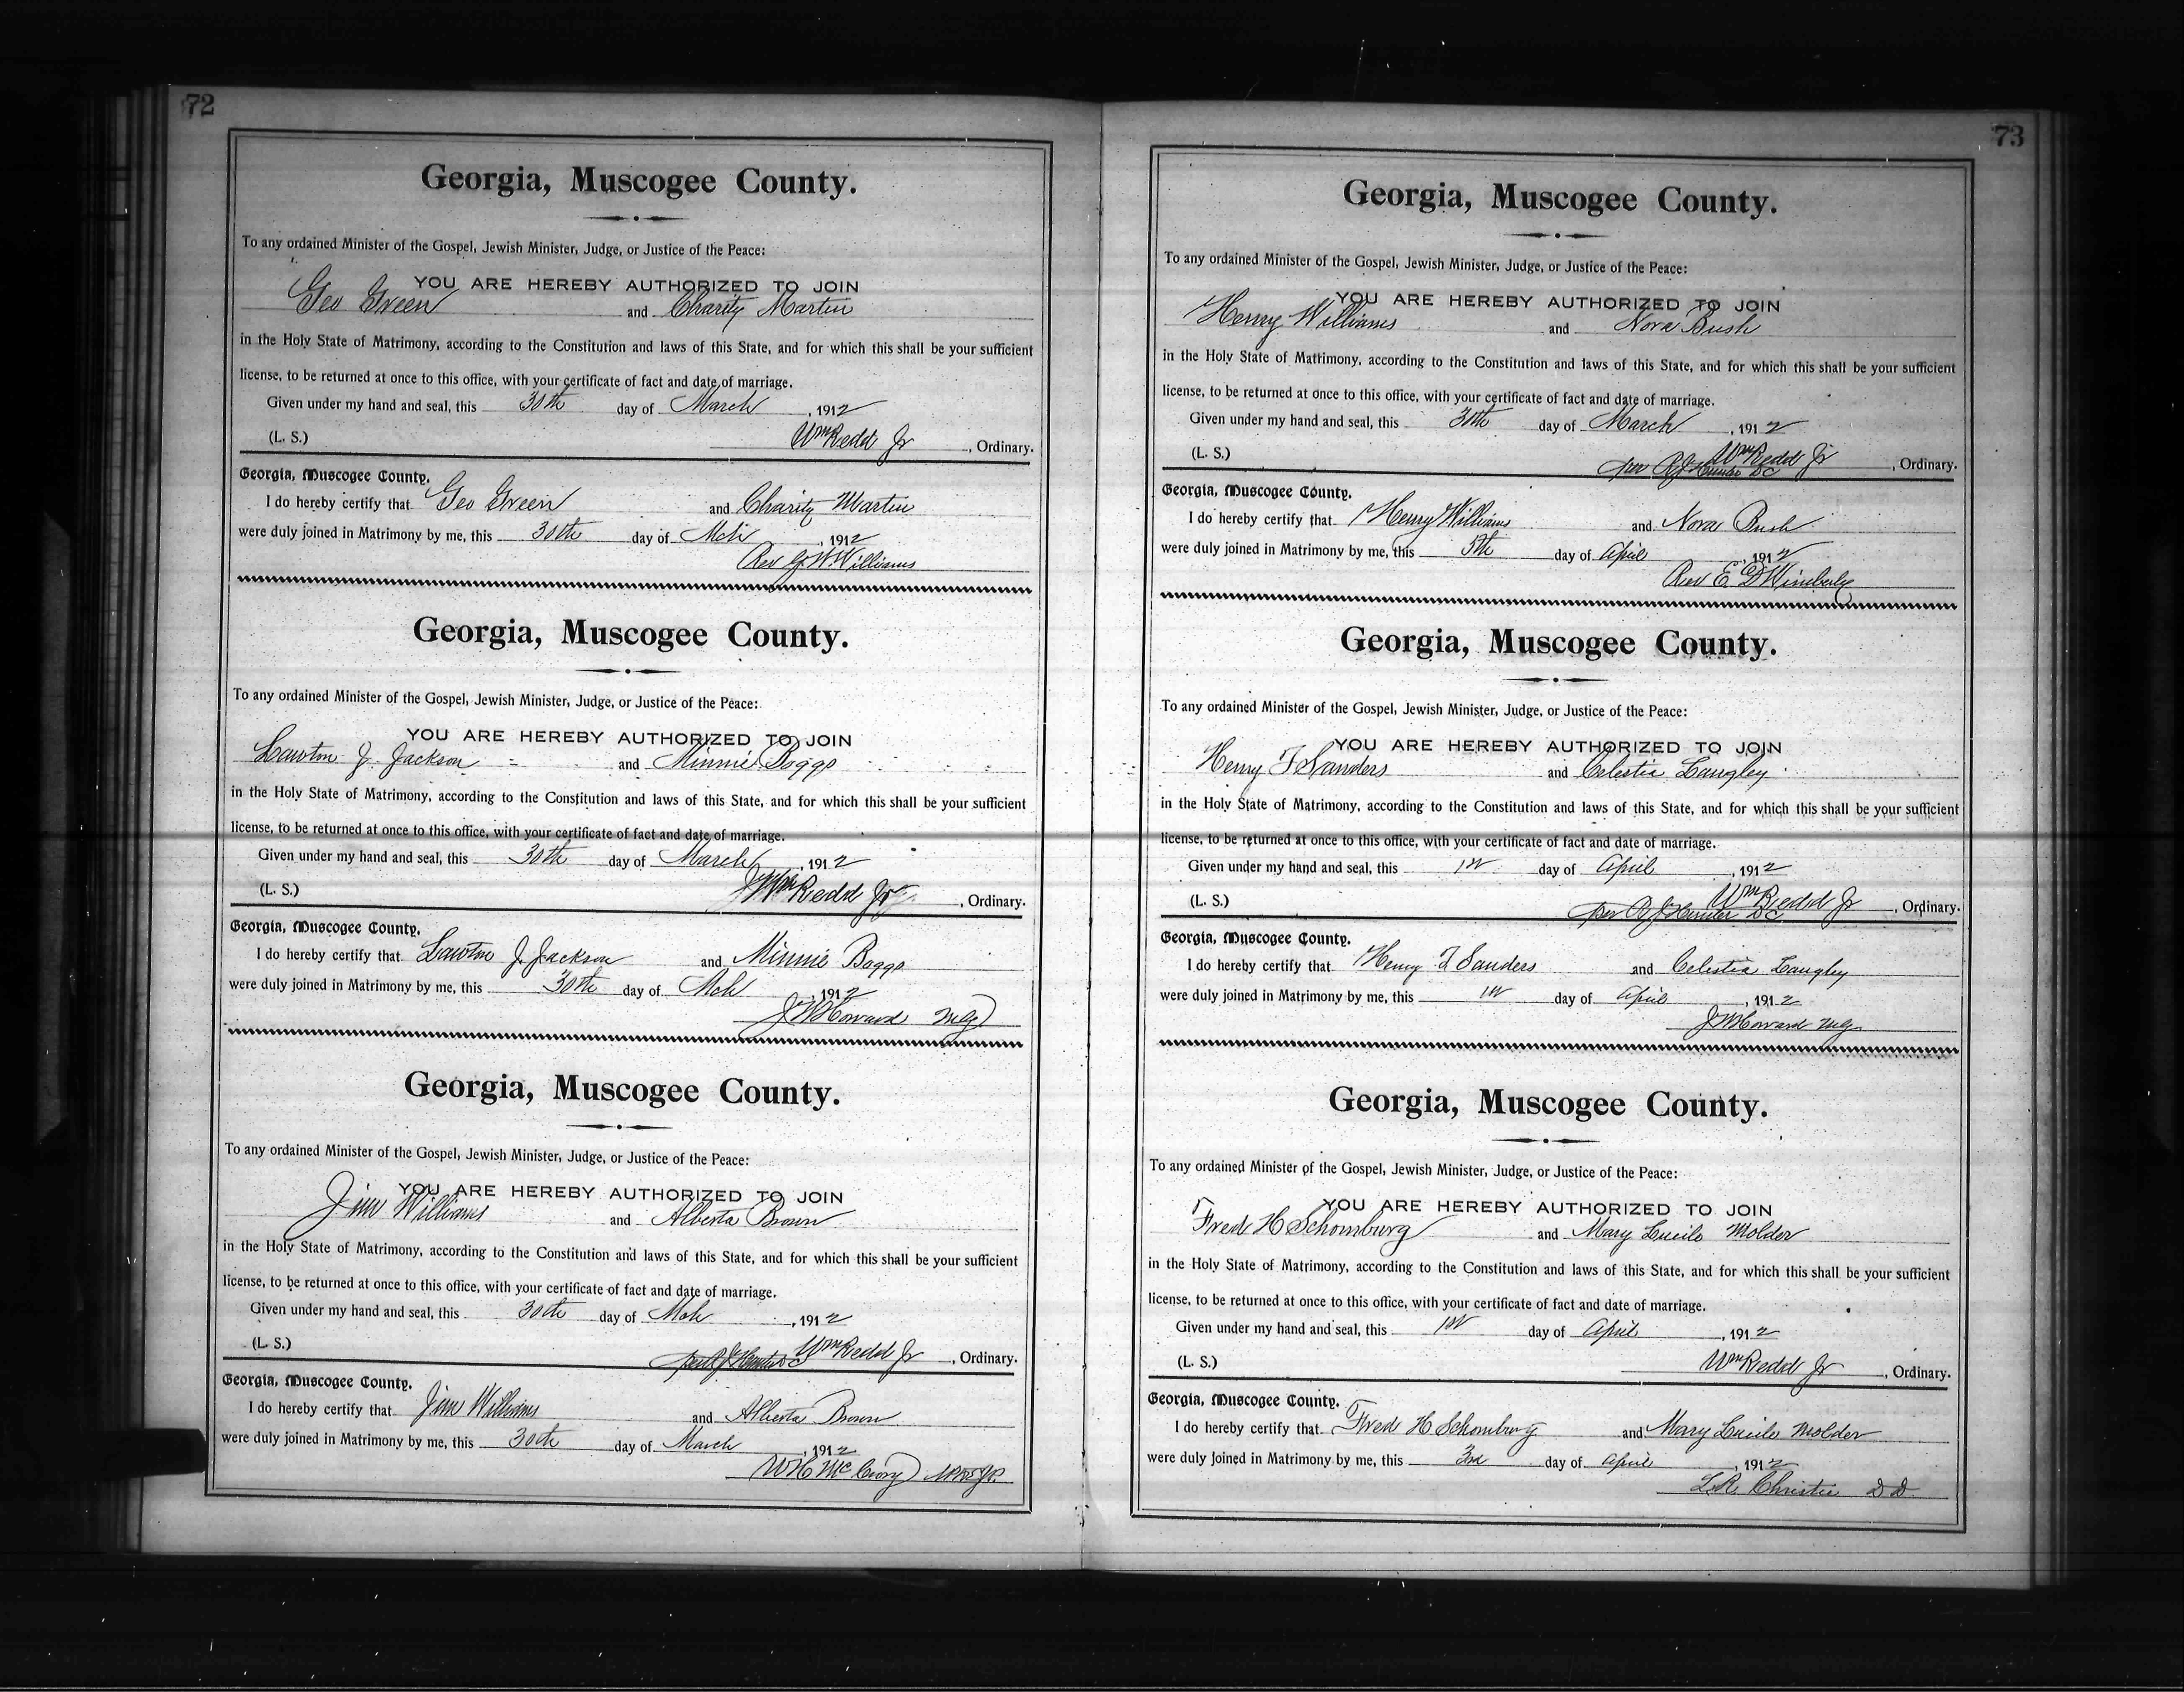 72
Georgia, Muscogee County.
To any ordained Minister of the Gospel, Jewish Minister, Judge, or Justice of the Peace:
YOU ARE HEREBY AUTHORIZED TO JOIN
Geo Green and Charity Martin
in the Holy State of Matrimony, according to the Constitution and laws of this State, and for which this shall be your sufficient
license, to be returned at once to this office, with your certificate of fact and date of marriage.
Given under my hand and seal, this 30th day of March, 1912
(L. S.) Wm Redd Jr, Ordinary.
Georgia, Muscogee County.
I do hereby certify that Geo Green and Charity Martin
were duly joined in Matrimony by me, this 30th day of Mch, 1912
Rev G. W. Williams
Georgia, Muscogee County.
To any ordained Minister of the Gospel, Jewish Minister, Judge, or Justice of the Peace:
YOU ARE HEREBY AUTHORIZED TO JOIN
Lawton J. Jackson and Minnie Boggs
in the Holy State of Matrimony, according to the Constitution and laws of this State, and for which this shall be your sufficient
license, to be returned at once to this office, with your certificate of fact and date of marriage.
Given under my hand and seal, this 30th day of March, 1912
(L. S.) Wm Redd Jr, Ordinary.
Georgia, Muscogee County.
I do hereby certify that Lawton J. Jackson and Minnie Boggs
were duly joined in Matrimony by me, this 30th day of Mch, 1912
J W Howard M.G.
Georgia, Muscogee County.
To any ordained Minister of the Gospel, Jewish Minister, Judge, or Justice of the Peace:
YOU ARE HEREBY AUTHORIZED TO JOIN
Jim Williams and Alberta Brown
in the Holy State of Matrimony, according to the Constitution and laws of this State, and for which this shall be your sufficient
license, to be returned at once to this office, with your certificate of fact and date of marriage.
Given under my hand and seal, this 30th day of Mch, 1912
(L. S.) per R J Hunter DC Wm Redd Jr, Ordinary.
Georgia, Muscogee County.
I do hereby certify that Jim Williams and Alberta Brown
were duly joined in Matrimony by me, this 30th day of March, 1912
W H McCrory
73
Georgia, Muscogee County.
To any ordained Minister of the Gospel, Jewish Minister, Judge, or Justice of the Peace:
YOU ARE HEREBY AUTHORIZED TO JOIN
Henry Williams and Nora Bush
in the Holy State of Matrimony, according to the Constitution and laws of this State, and for which this shall be your sufficient
license, to be returned at once to this office, with your certificate of fact and date of marriage.
Given under my hand and seal, this 30th day of March, 1912
(L. S.) per R J Hunter DC Wm Redd Jr, Ordinary.
Georgia, Muscogee County.
I do hereby certify that Henry Williams and Nora Bush
were duly joined in Matrimony by me, this 5th day of April, 1912
Rev E D Wimberly
Georgia, Muscogee County.
To any ordained Minister of the Gospel, Jewish Minister, Judge, or Justice of the Peace:
YOU ARE HEREBY AUTHORIZED TO JOIN
Henry T Sanders and Celestia Langley
in the Holy State of Matrimony, according to the Constitution and laws of this State, and for which this shall be your sufficient
license, to be returned at once to this office, with your certificate of fact and date of marriage.
Given under my hand and seal, this 1st day of April, 1912
(L. S.) per R J Hunter DC Wm Redd Jr, Ordinary.
Georgia, Muscogee County.
I do hereby certify that Henry T Sanders and Celestia Langley
were duly joined in Matrimony by me, this 1st day of April, 1912
J W Howard M.G.
Georgia, Muscogee County.
To any ordained Minister of the Gospel, Jewish Minister, Judge, or Justice of the Peace:
YOU ARE HEREBY AUTHORIZED TO JOIN
Fred H Schomburg and Mary Lucile Molder
in the Holy State of Matrimony, according to the Constitution and laws of this State, and for which this shall be your sufficient
license, to be returned at once to this office, with your certificate of fact and date of marriage.
Given under my hand and seal, this 1st day of April, 1912
(L. S.) Wm Redd Jr, Ordinary.
Georgia, Muscogee County.
I do hereby certify that Fred H Schomburg and Mary Lucile Molder
were duly joined in Matrimony by me, this 3rd day of April, 1912
L R Christie D D